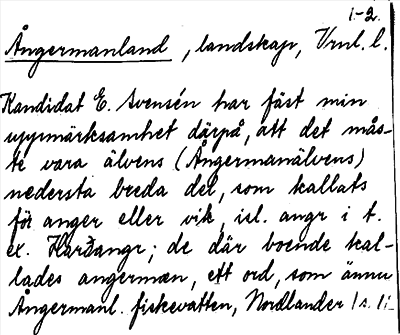 1-2.
Ångermanland, landskap, Vrnl. l.
Kandidat E. Svensén har fäst min
uppmärksamhet därpå, att det mås-
te vara älvens (Ångermanälvens)
nedersta breda del, som kallats
för anger eller vik, isl. angr i t.
ex. Harðangr; de där boende kal-
lades angermæn, ett ord, som ännu
Ångermanl. fiskevatten, Nordlander